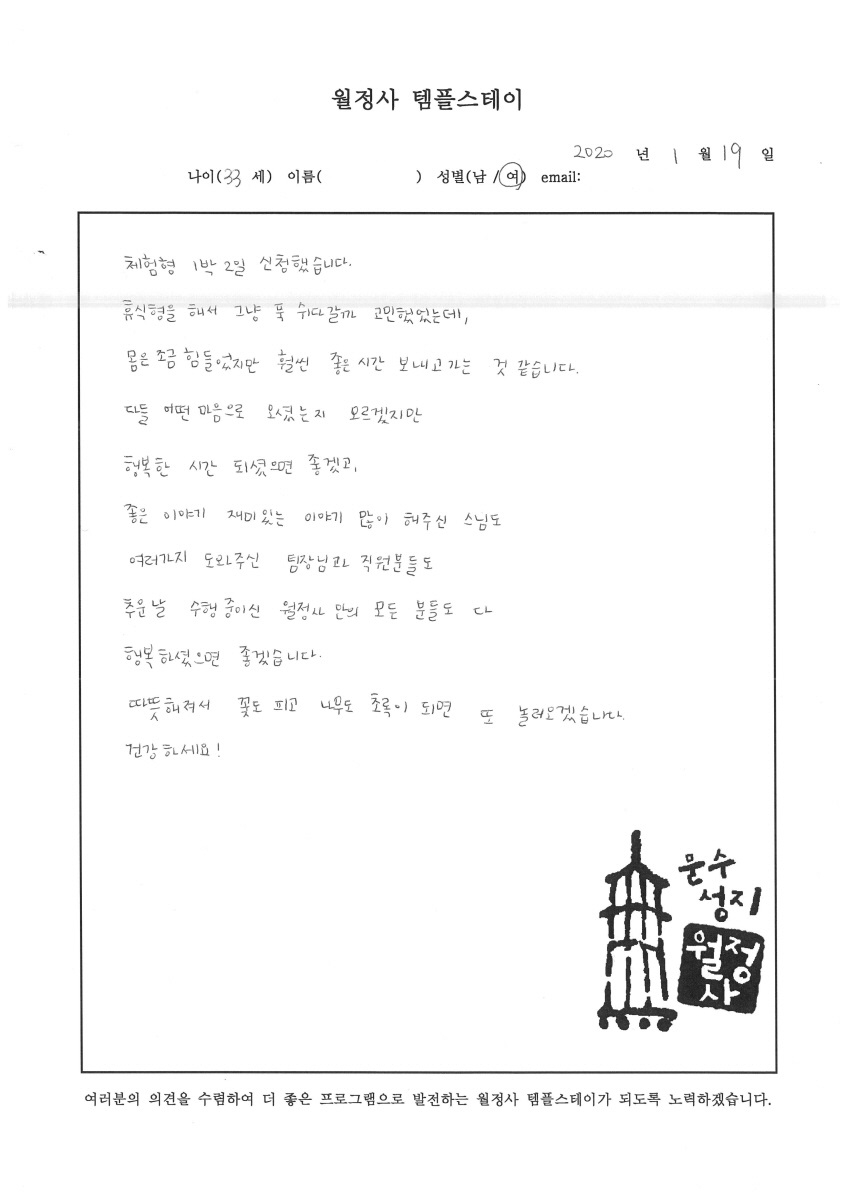 월정사 템플스테이
2020 년 1 월 19 일
나이(33 세) 이름( ) 성별(남 / 여) email:
체험형 1박 2일 신청했습니다.
휴식형을 해서 그냥 푹 쉬다갈까 고민했었는데,
몸은 조금 힘들었지만 훨씬 좋은 시간 보내고 가는 것 같습니다.
다들 어떤 마음으로 오셨는지 모르겠지만
행복한 시간 되셨으면 좋겠고,
좋은 이야기 재미있는 이야기 많이 해주신 스님도
여러가지 도와주신 팀장님과 직원분들도
추운날 수행중이신 월정사 안의 모든 분들도 다
행복하셨으면 좋겠습니다.
따뜻해져서 꽃도 피고 나무도 초록이 되면 또 놀러오겠습니다.
건강하세요!
문수
성지
월정
사
여러분의 의견을 수렴하여 더 좋은 프로그램으로 발전하는 월정사 템플스테이가 되도록 노력하겠습니다.